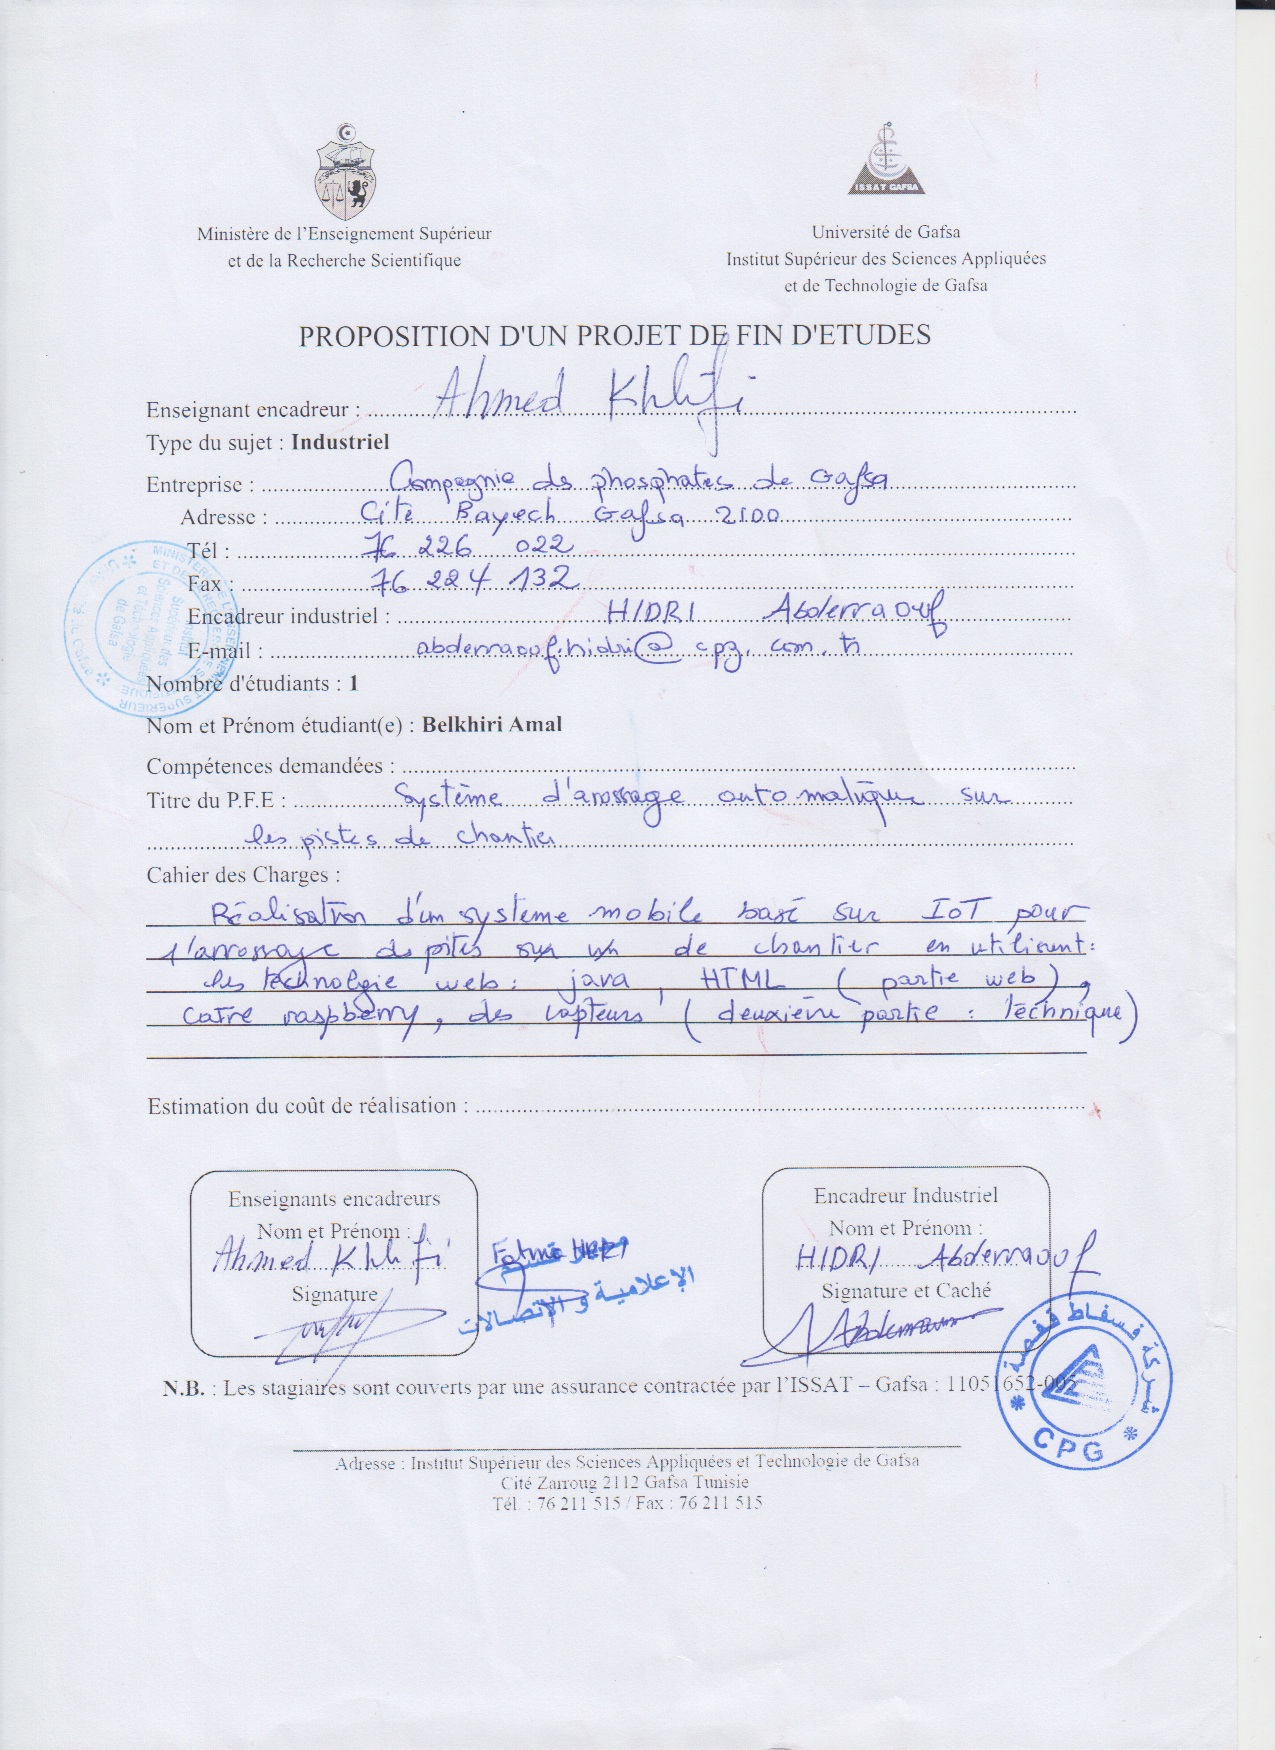 ISSAT GAFSA
Ministère de l'Enseignement Supérieur
et de la Recherche Scientifique
Université de Gafsa
Institut Supérieur des Sciences Appliquées
et de Technologie de Gafsa
PROPOSITION D'UN PROJET DE FIN D'ETUDES
Enseignant encadreur : Ahmed Khlifi
Type du sujet : Industriel
Entreprise : Compagnie des phosphates de Gafsa
Adresse : Cité Bayech Gafsa 2100
Tél : 76 226 022
Fax : 76 224 132
Encadreur industriel : HIDRI Abderraouf
E-mail : abderraouf.hidri@cpg.com.tn
Nombre d'étudiants : 1
Nom et Prénom étudiant(e) : Belkhiri Amal
Compétences demandées :
Titre du P.F.E : Système d'arossage automatique sur
les pistes de chantier
Cahier des Charges :
Réalisation d'un systeme mobile basé sur IoT pour
l'arrossage des pites sur de chantier en utilisant:
les technolgie web: java, HTML (partie web),
carte raspberry, des capteurs (deuxième partie : technique)
Estimation du coût de réalisation :
Enseignants encadreurs
Nom et Prénom :
Ahmed Khlifi
Signature
الإعلامية و الإتصالات
Encadreur Industriel
Nom et Prénom :
HIDRI Abderraouf
Signature et Caché
شركة فسفاط قفصة
CPG
N.B. : Les stagiaires sont couverts par une assurance contractée par l'ISSAT – Gafsa : 11051652-005
Adresse : Institut Supérieur des Sciences Appliquées et Technologie de Gafsa
Cité Zarroug 2112 Gafsa Tunisie
Tél. : 76 211 515 / Fax : 76 211 515